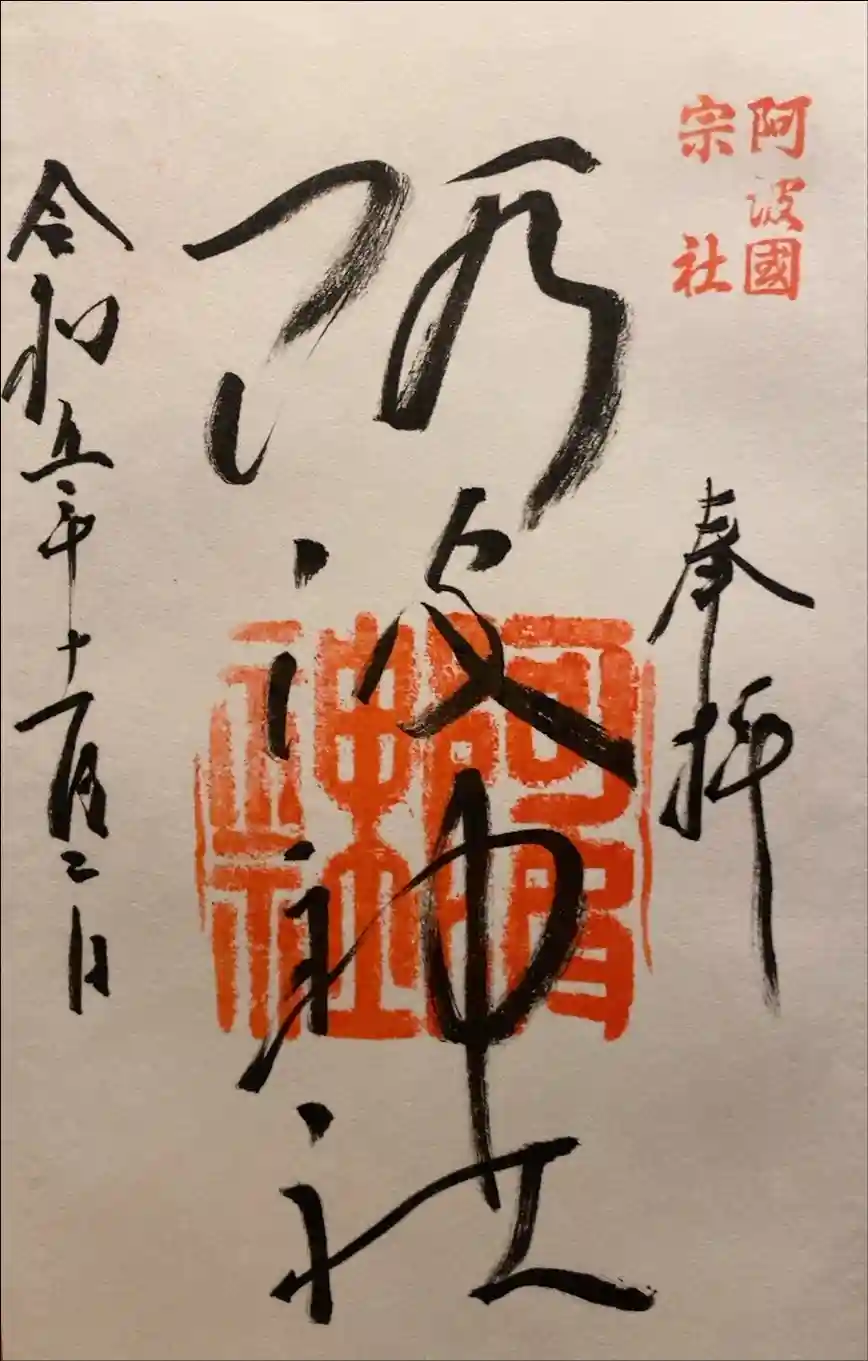 阿波國
宗社
奉拝
阿波神社
令和五年十一月二日